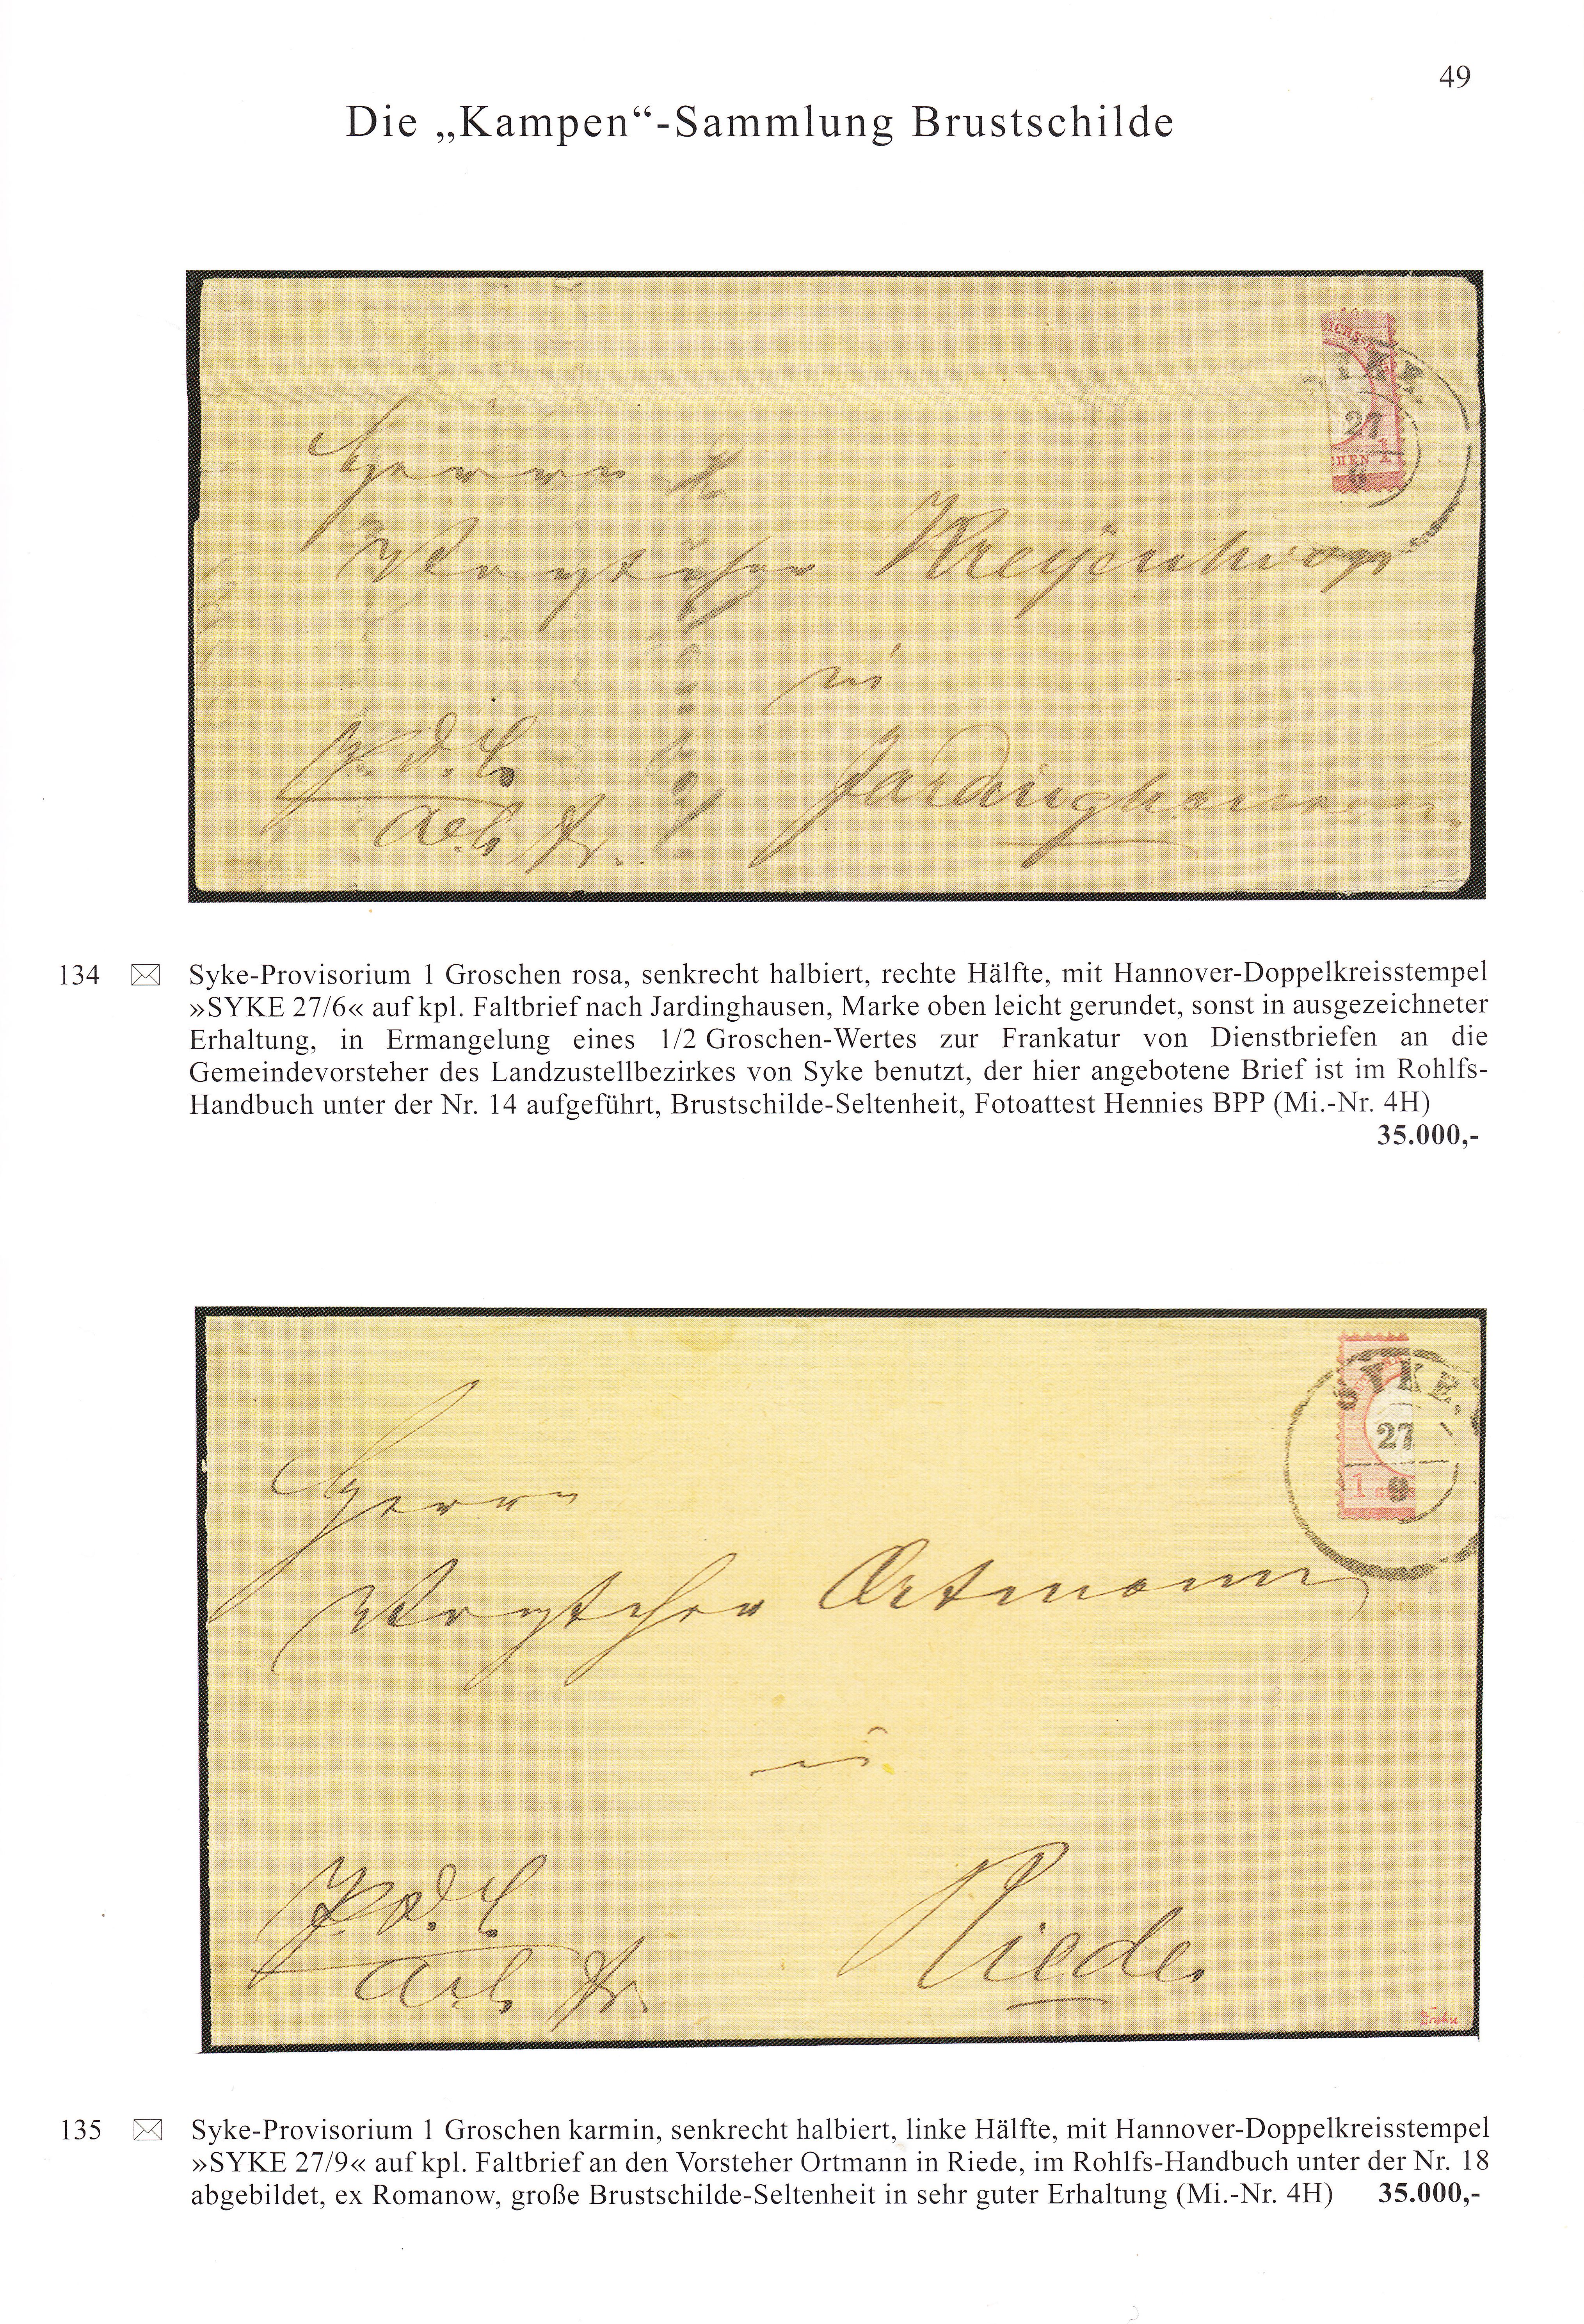 49
Die „Kampen“-Sammlung Brustschilde
EICHS-P
SYKE.
27
6
CHEN 1
Herrn
Vorsteher Kreyenhop
in
Jardinghausen.
134 Syke-Provisorium 1 Groschen rosa, senkrecht halbiert, rechte Hälfte, mit Hannover-Doppelkreisstempel
»SYKE 27/6« auf kpl. Faltbrief nach Jardinghausen, Marke oben leicht gerundet, sonst in ausgezeichneter
Erhaltung, in Ermangelung eines 1/2 Groschen-Wertes zur Frankatur von Dienstbriefen an die
Gemeindevorsteher des Landzustellbezirkes von Syke benutzt, der hier angebotene Brief ist im Rohlfs-
Handbuch unter der Nr. 14 aufgeführt, Brustschilde-Seltenheit, Fotoattest Hennies BPP (Mi.-Nr. 4H)
35.000,-
SYKE.
27
9
1 GROS
Herrn
Vorsteher Ortmann
in
Riede.
135 Syke-Provisorium 1 Groschen karmin, senkrecht halbiert, linke Hälfte, mit Hannover-Doppelkreisstempel
»SYKE 27/9« auf kpl. Faltbrief an den Vorsteher Ortmann in Riede, im Rohlfs-Handbuch unter der Nr. 18
abgebildet, ex Romanow, große Brustschilde-Seltenheit in sehr guter Erhaltung (Mi.-Nr. 4H) 35.000,-